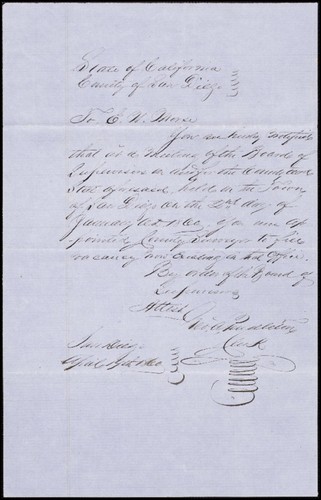 State of California
County of San Diego
To E. W. Morse
You are hereby notified
that at a Meeting of the Board of
Supervisors in and for the County and
State aforesaid, held in the Town
of San Diego on the 20th day of
January A D 1860, you were ap
pointed County Surveyor to fill
vacancy now existing in said Office.
By order of the Board of
Supervisors
Attest
Geo. A. Pendleton
Clerk
San Diego